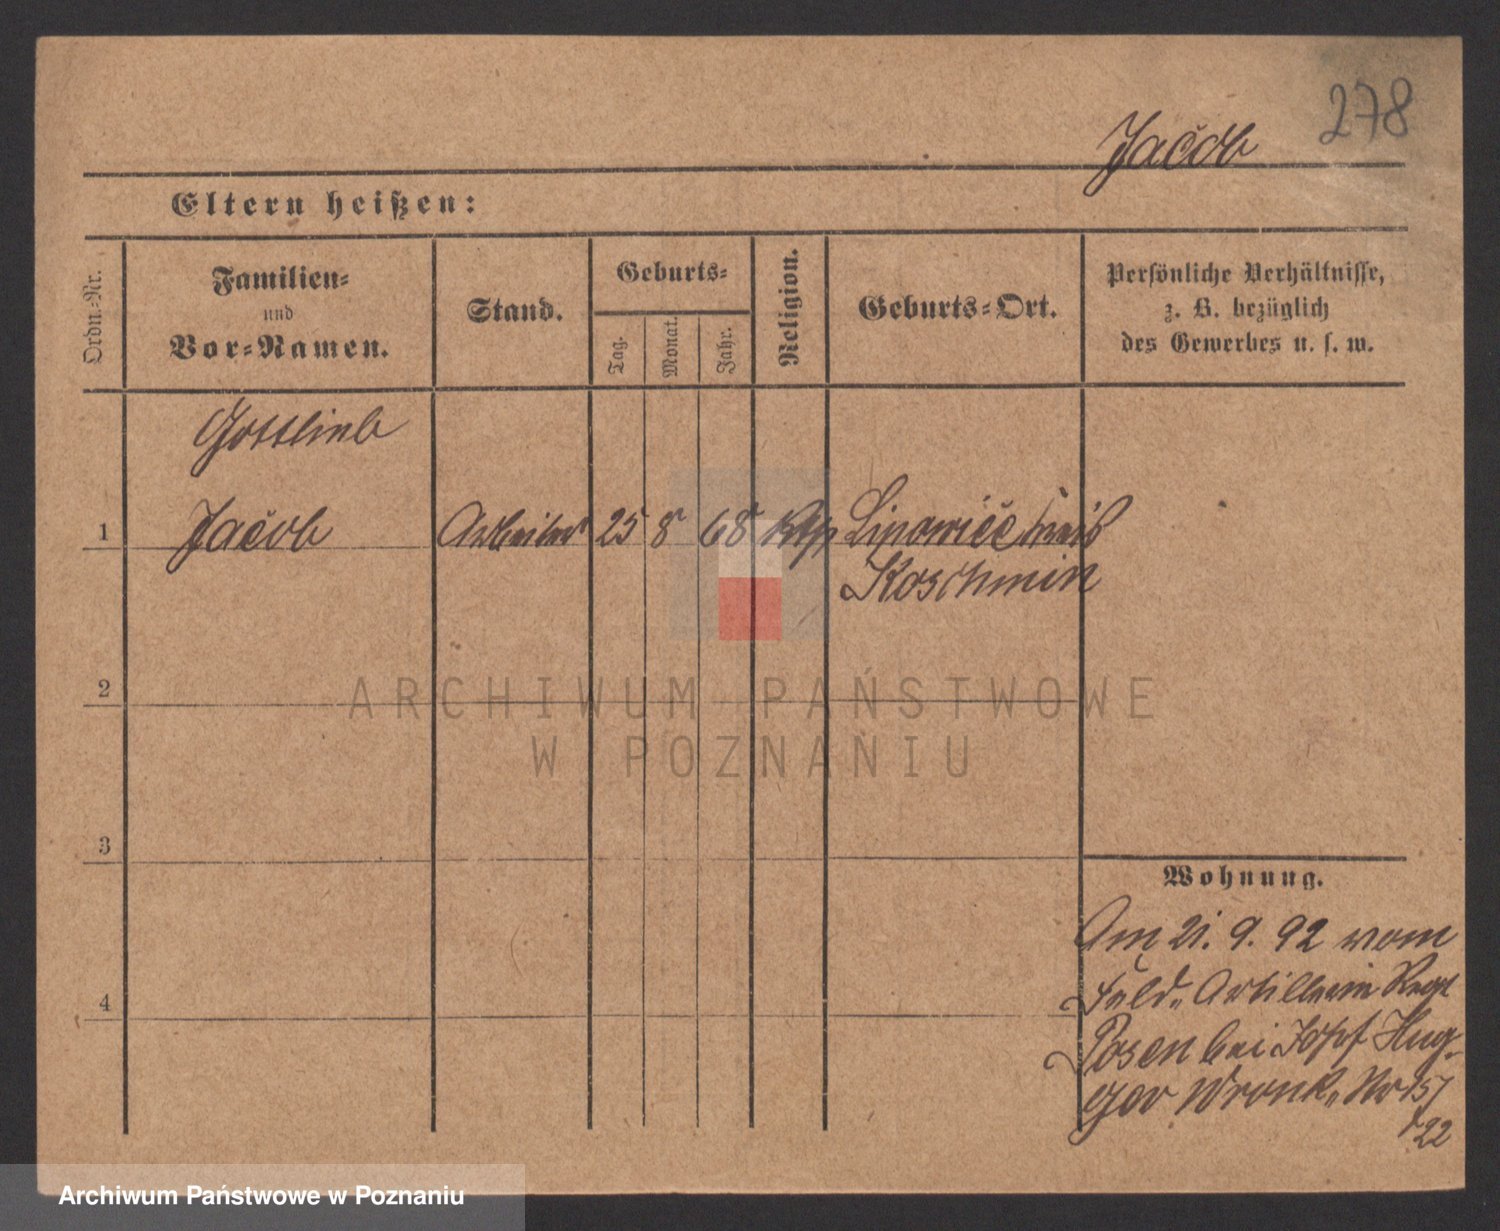 278
Jacob
Eltern heißen:
Ordn.-Nr.
Familien-
und
Vor-Namen.
Stand.
Geburts-
Tag.
Monat.
Jahr.
Religion.
Geburts-Ort.
Persönliche Verhältnisse,
z. B. bezüglich
des Gewerbes u. s. w.
Gottlieb
1 Jacob Arbeiter 25 8 68 Lipowiec Kreis
Koschmin
2
3
4
Wohnung.
Am 21. 9. 92 vom
Feld-Artillerie Regt
Posen bei Josef Hug-
ger Wronk. No
22
ARCHIWUM PAŃSTWOWE
W POZNANIU
Archiwum Państwowe w Poznaniu